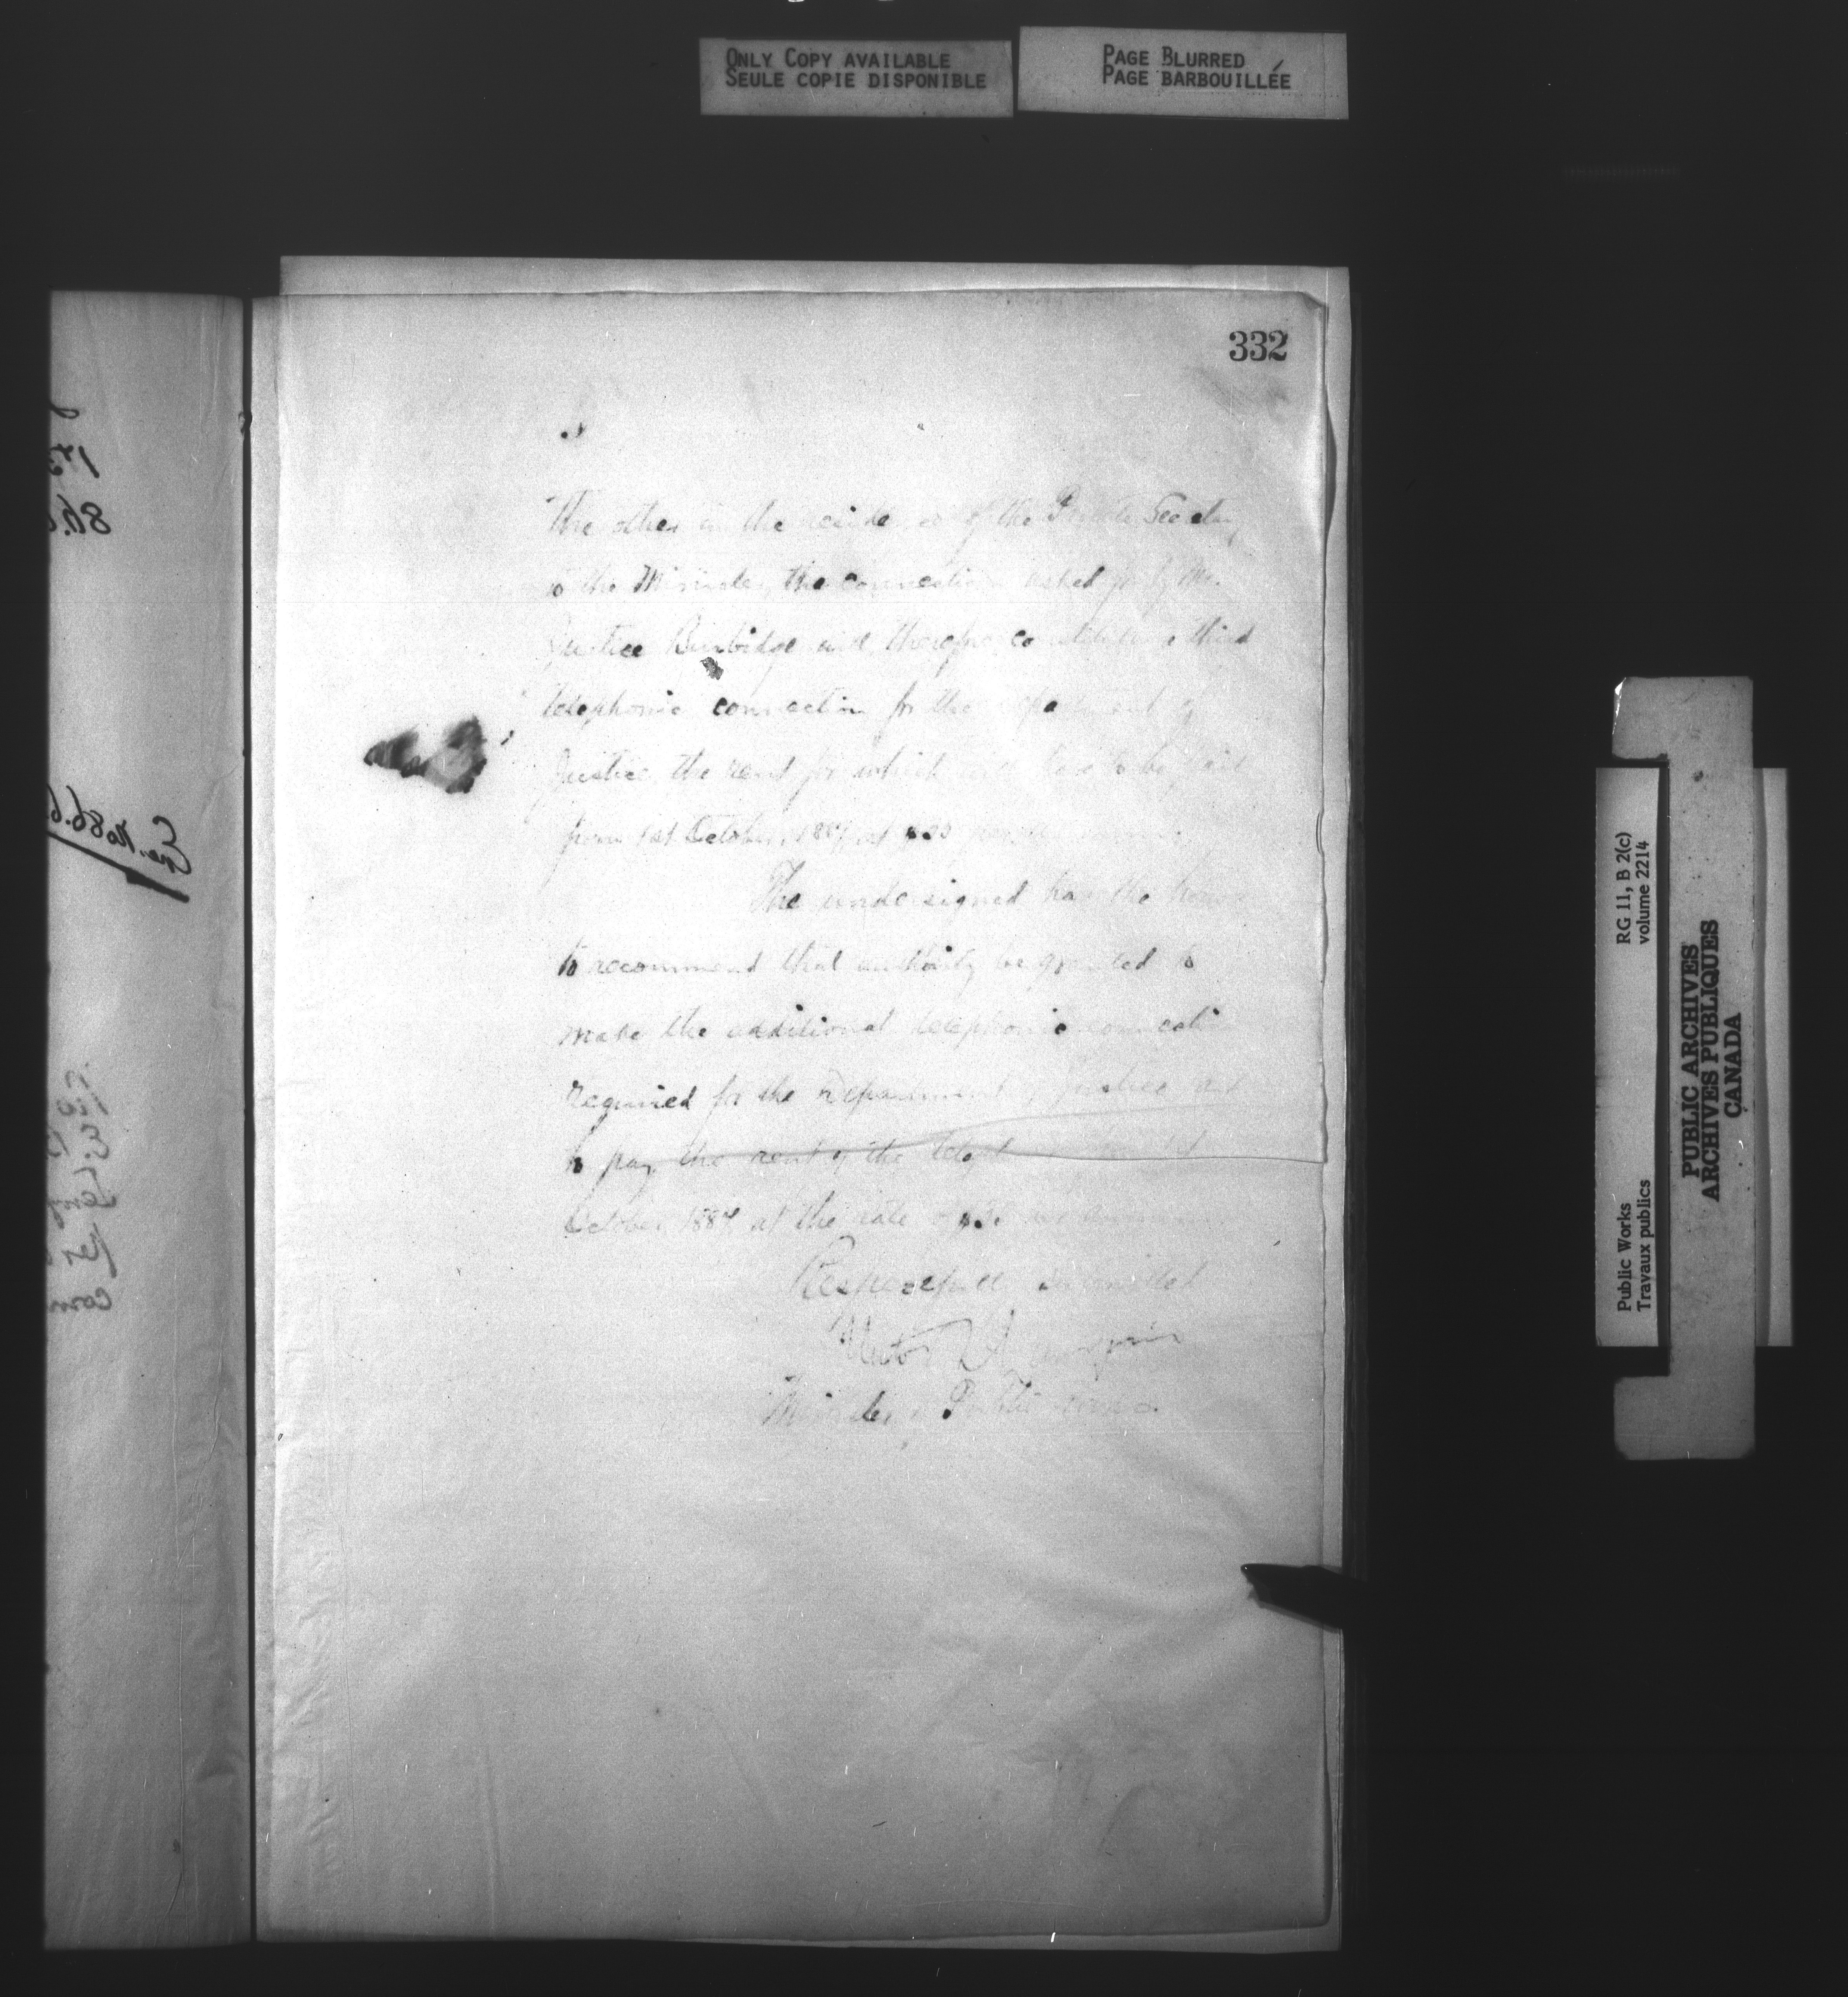 ONLY COPY AVAILABLE
SEULE COPIE DISPONIBLE
PAGE BLURRED
PAGE BARBOUILLÉE
332
The other in the residence of the Private Secretary
to the Minister, the connection asked for by Mr.
Justice Burbidge will therefore constitute a third
telephonic connection for the Department of
Justice, the rent for which will have to be paid
from 1st October, 1887, at $30 per annum.
The undersigned has the honor
to recommend that authority be granted to
make the additional telephonic connection
required for the Department of Justice and
to pay the rent of the telephone from 1st
October 1887 at the rate of $30 per annum
Respectfully submitted
Hector L Langevin
Minister of Public Works
RG 11, B 2(c)
volume 2214
Public Works
Travaux publics
PUBLIC ARCHIVES
ARCHIVES PUBLIQUES
CANADA